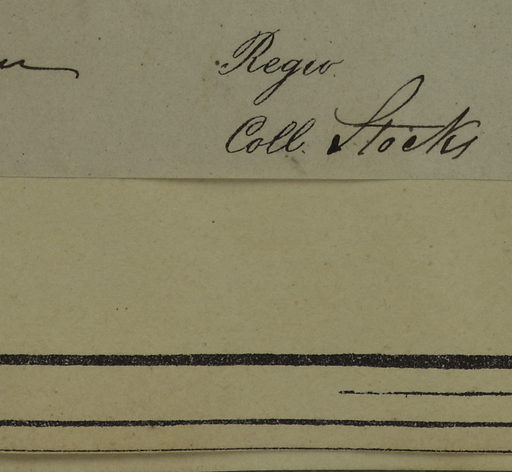 Regio
Coll. Stocks